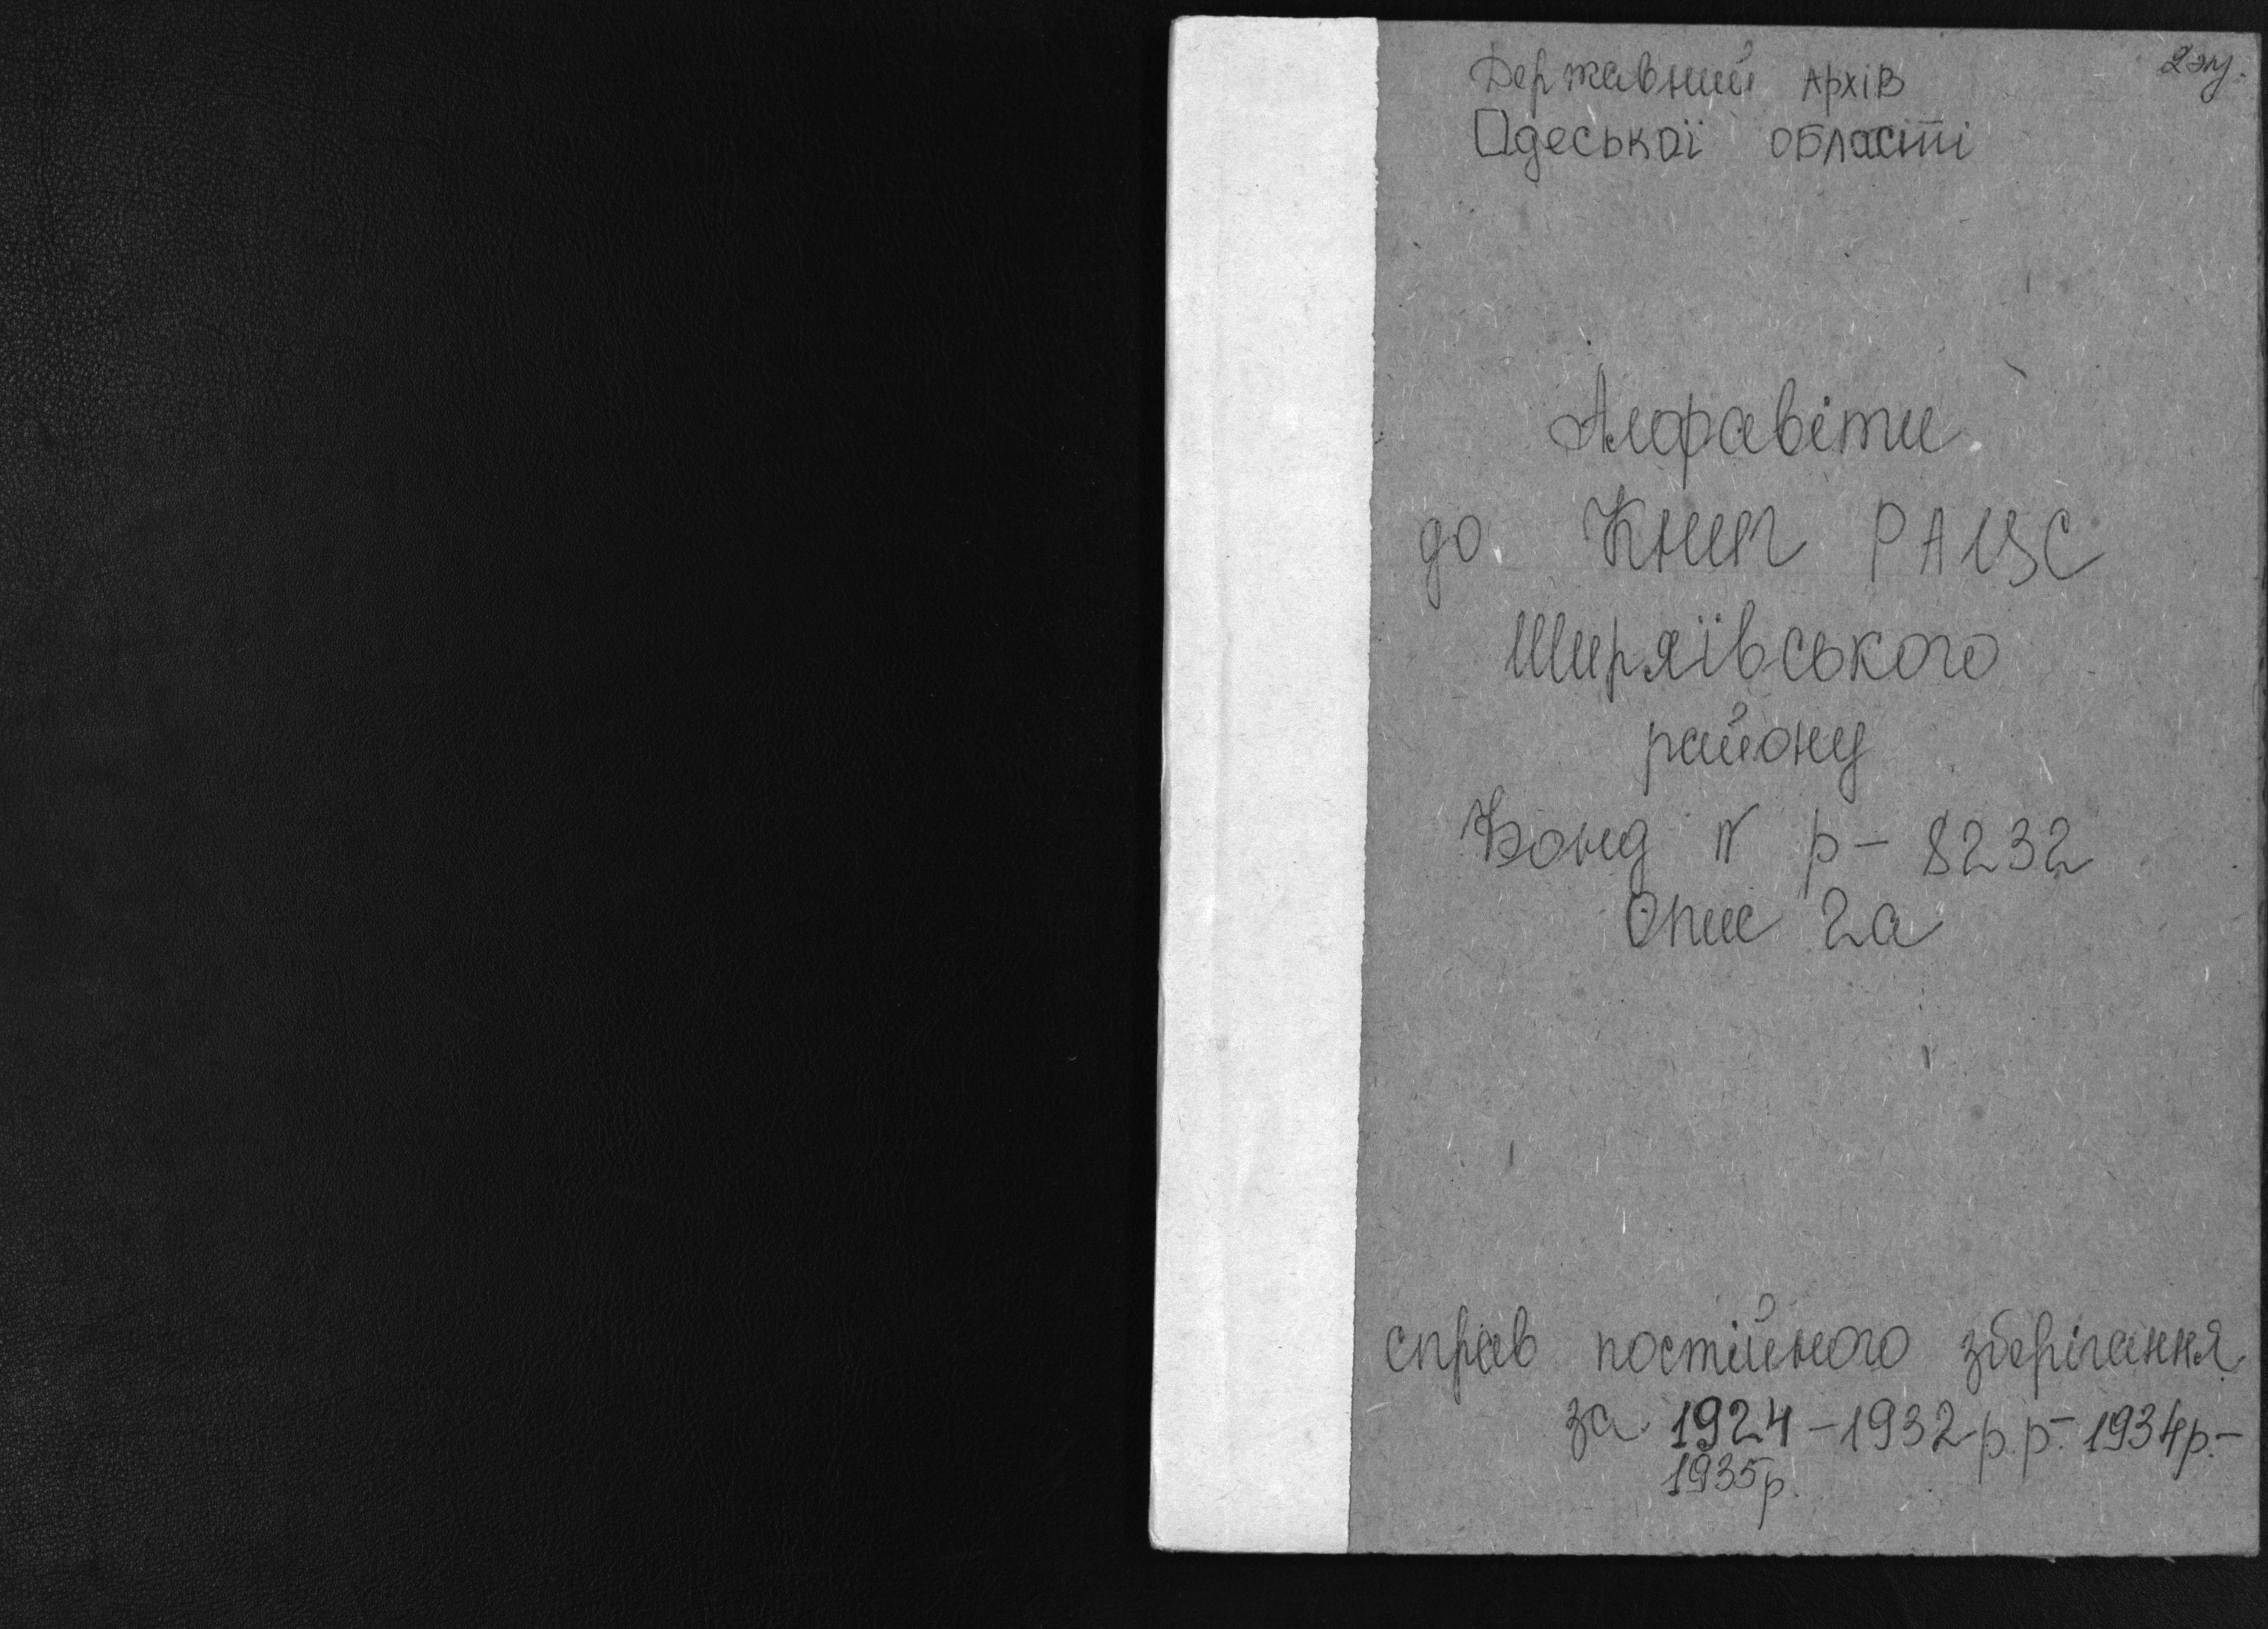 2 эк.
Державний Архів
Одеської області
Алфавіти
до Книг РАЦС
Ширяївського
району
Фонд № р- 8232
Опис 2а
справ постійного зберігання
за 1924 - 1932 р.р.- 1934р.-
1935р.